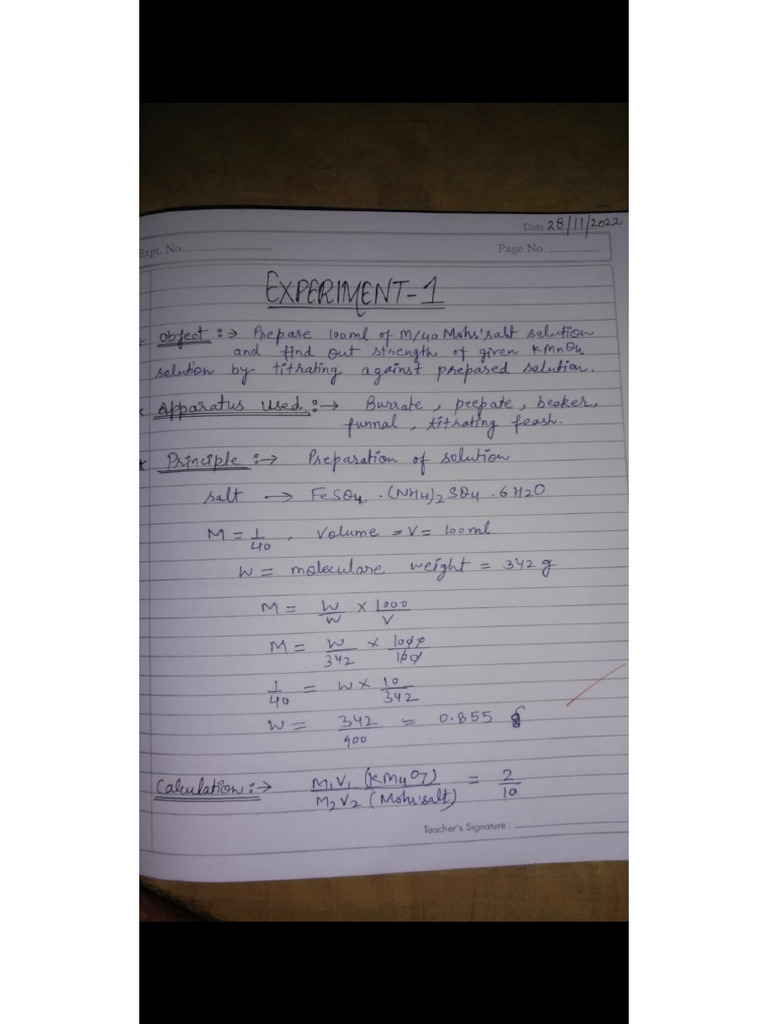 Date 28/11/2022
Expt. No.
Page No.
EXPERIMENT-1
Object :→ Prepare 100ml of M/40 Mohr'salt solution
and find out strength of given KMnO4
solution by titrating against prepared solution.
* Apparatus used :→ Burrate, peepate, beaker,
funnal, titrating feash.
* Principle :→ Preparation of solution
salt → FeSO4 . (NH4)2 SO4 . 6H2O
M = 1/40 , Volume = V = 100ml.
W = moleculare weight = 342 g
M = W/W × 1000/V
M = W/342 × 1000/100
1/40 = W × 10/342
W = 342/400 = 0.855 g
Calculation :→ M1V1 (KM4O7) / M2V2 (Mohr'salt) = 2/10
Teacher's Signature :